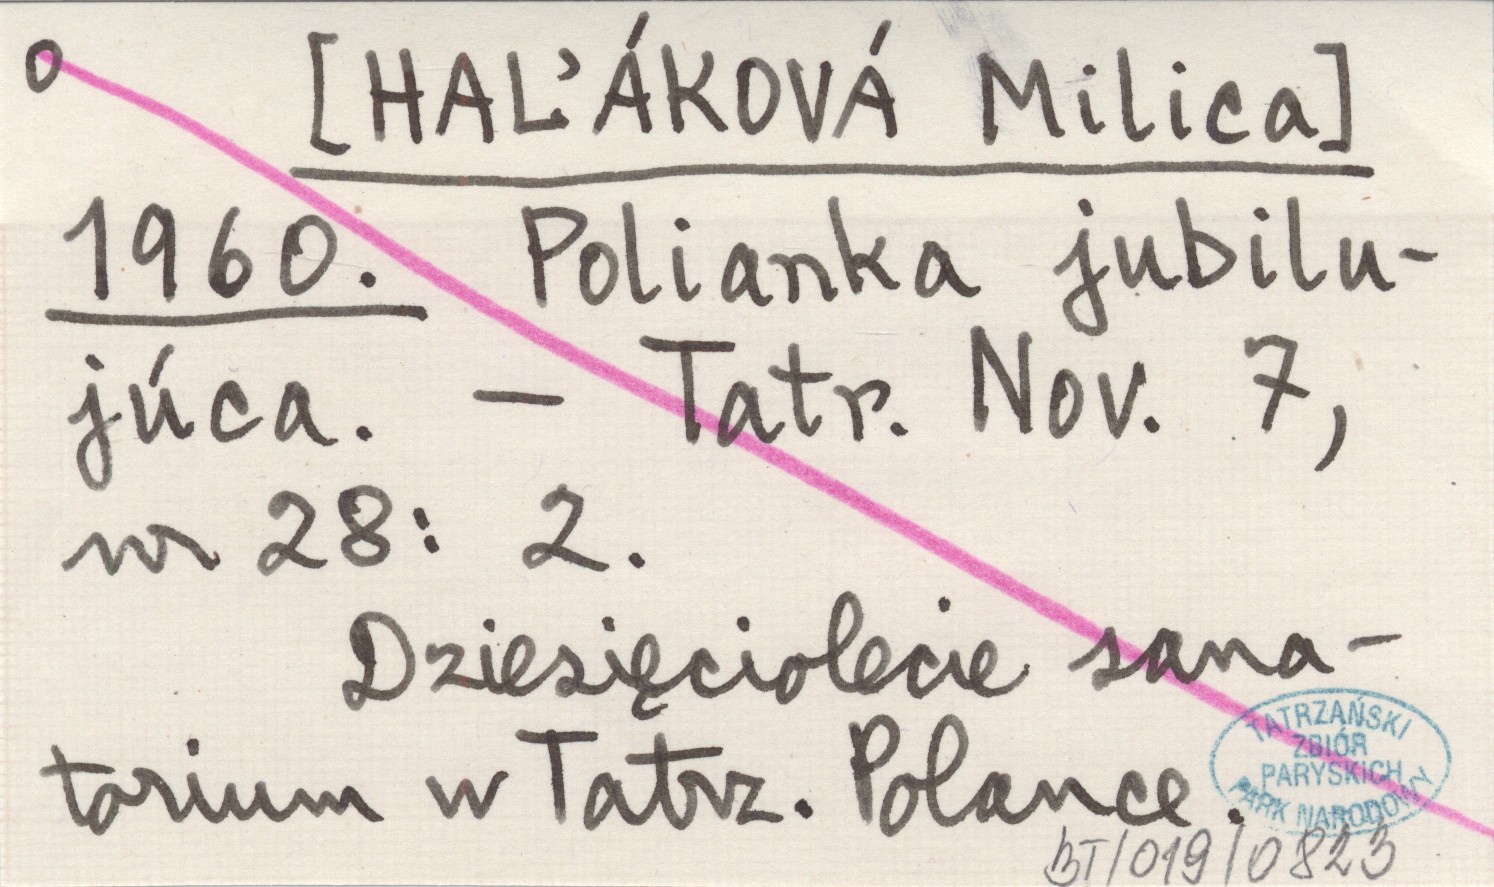 o [HAĽÁKOVÁ Milica]
1960. Polianka jubilu-
júca. — Tatr. Nov. 7,
nr 28: 2.
Dziesięciolecie sana-
torium w Tatrz. Polance.
TATRZAŃSKI
ZBIÓR
PARYSKICH
PARK NARODOWY
BT/019/0823